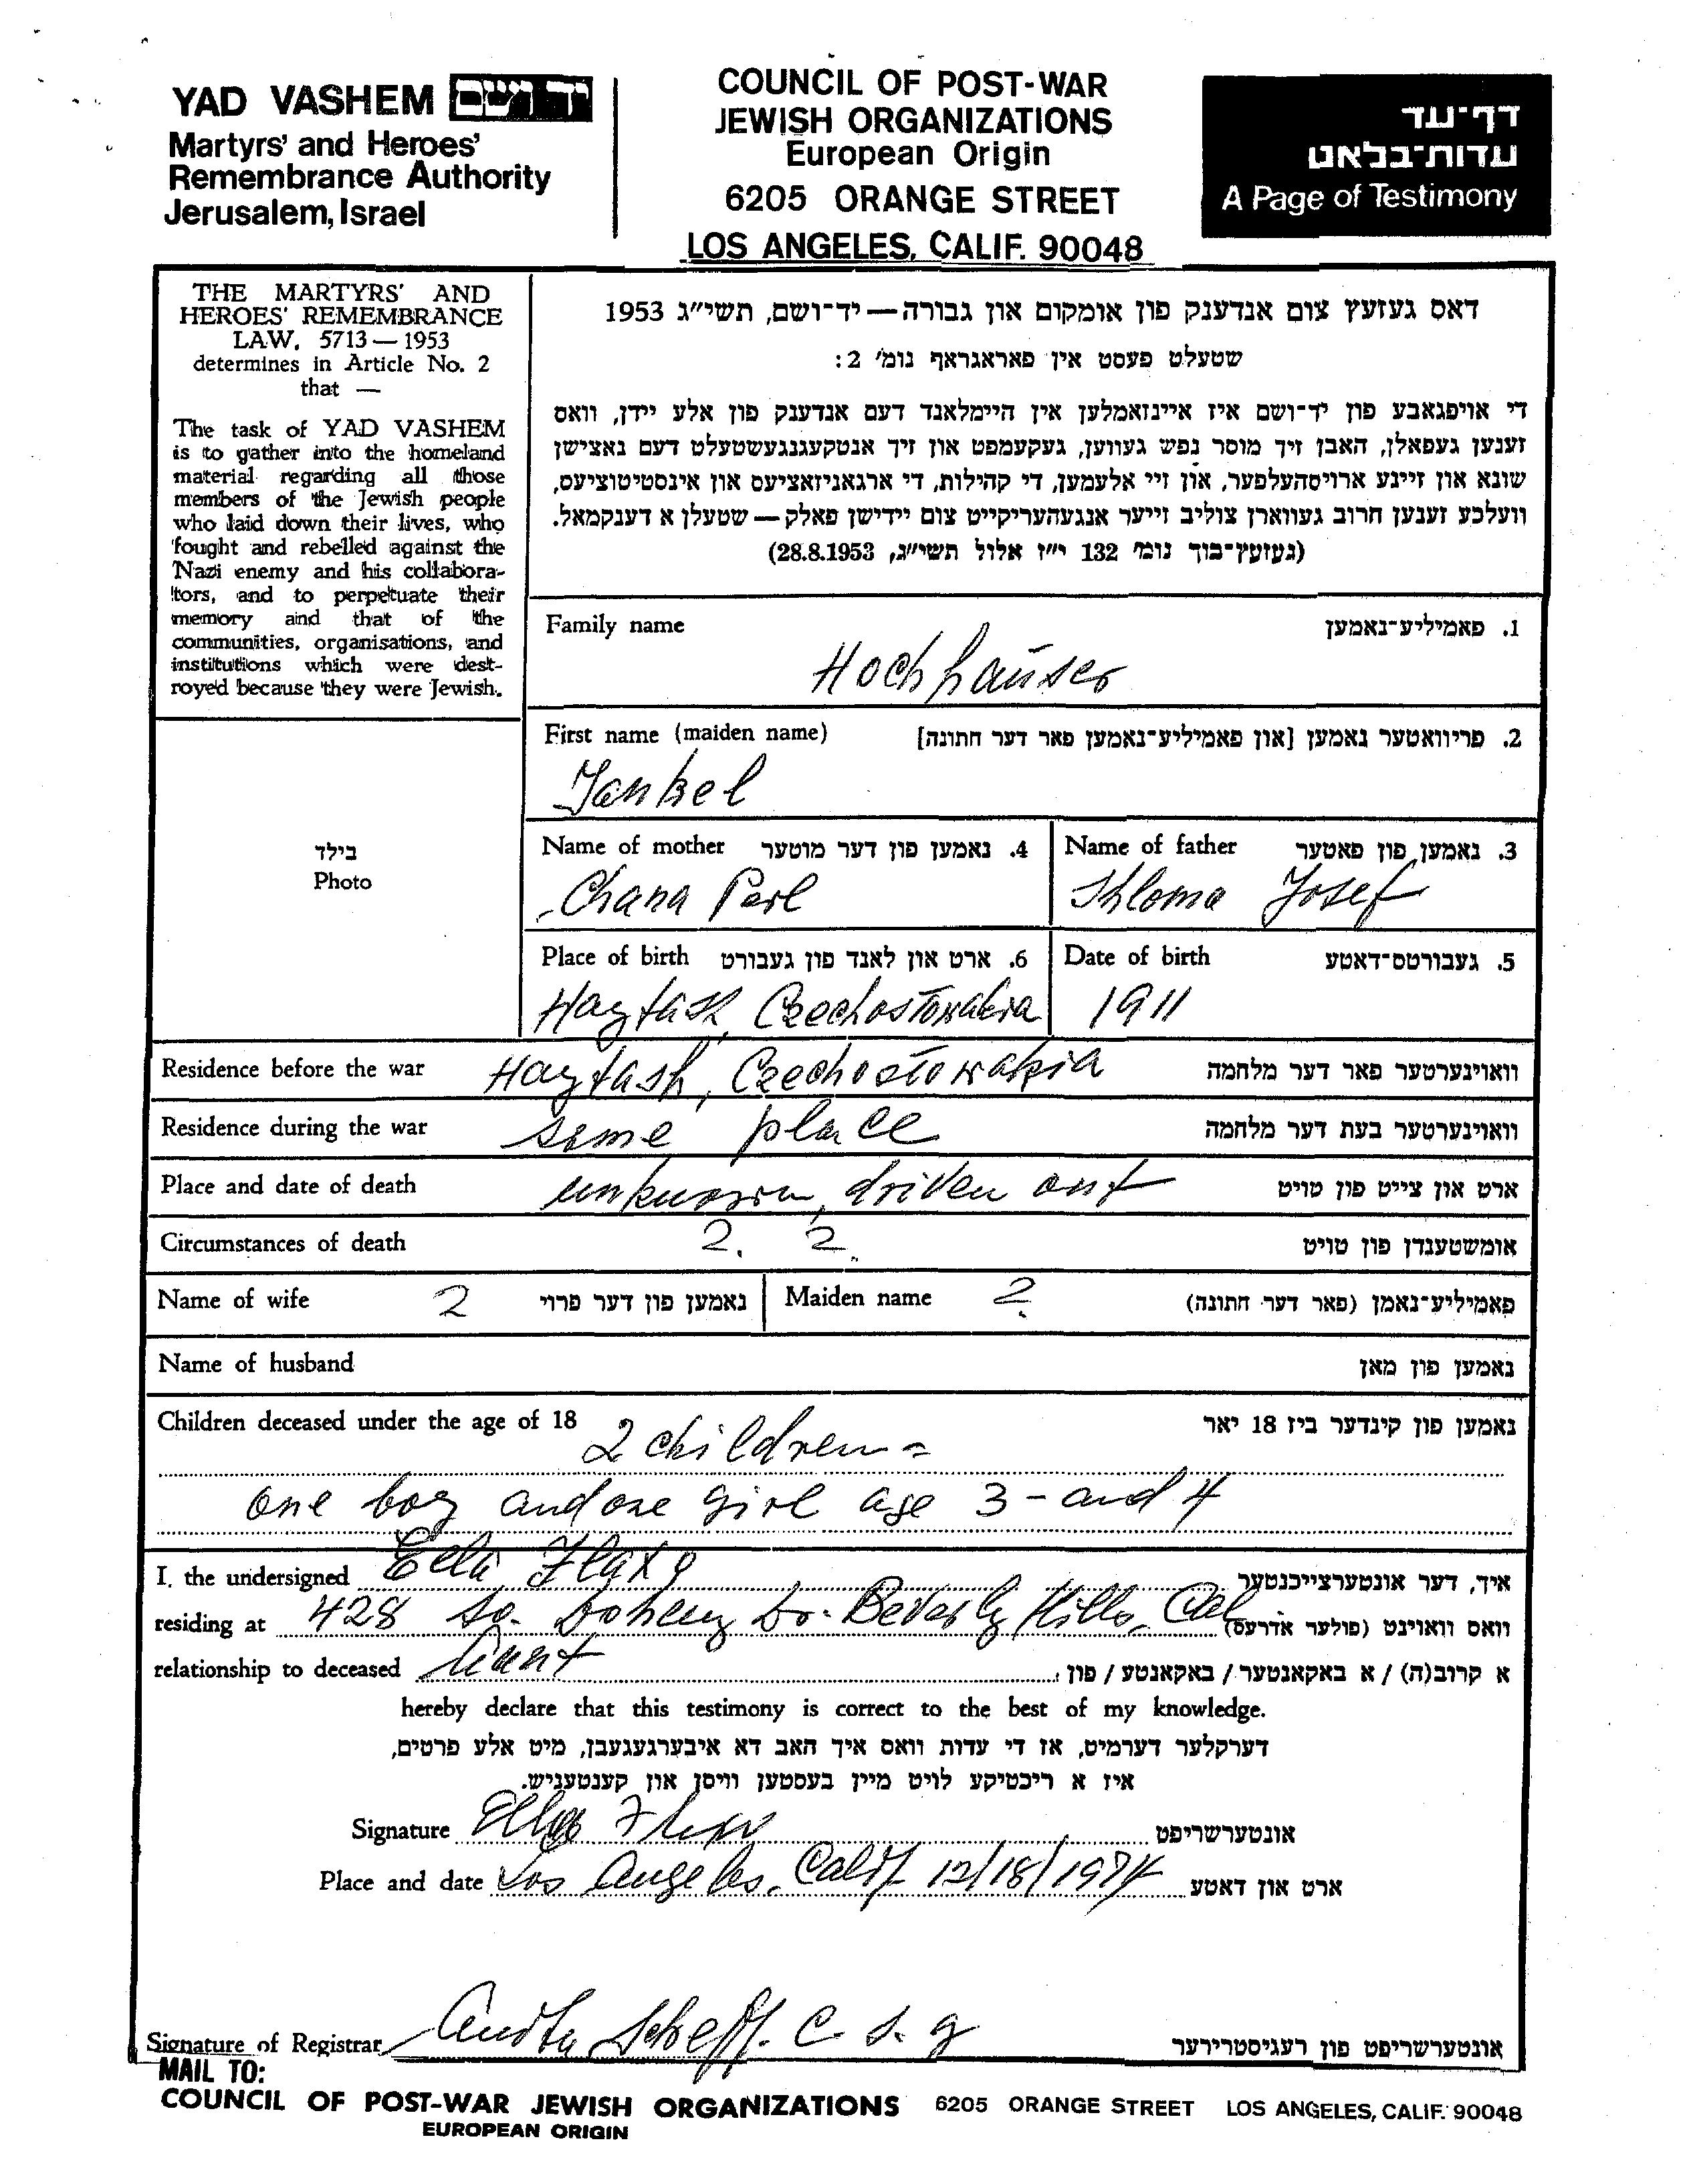 YAD VASHEM יד ושם
Martyrs' and Heroes'
Remembrance Authority
Jerusalem, Israel
COUNCIL OF POST-WAR
JEWISH ORGANIZATIONS
European Origin
6205 ORANGE STREET
LOS ANGELES, CALIF. 90048
דף-עד
עדות-בלאט
A Page of Testimony
THE MARTYRS' AND
HEROES' REMEMBRANCE
LAW, 5713—1953
determines in Article No. 2
that —
The task of YAD VASHEM
is to gather into the homeland
material regarding all those
members of the Jewish people
who laid down their lives, who
fought and rebelled against the
Nazi enemy and his collabora-
tors, and to perpetuate their
memory and that of the
communities, organisations, and
institutions which were dest-
royed because they were Jewish.
דאס געזעץ צום אנדענק פון אומקום און גבורה — יד-ושם, תשי"ג 1953
שטעלט פעסט אין פאראגראף נומ' 2:
די אויפגאבע פון יד-ושם איז איינזאמלען אין היימלאנד דעם אנדענק פון אלע יידן, וואס
זענען געפאלן, האבן זיך מוסר נפש געווען, געקעמפט און זיך אנטקעגנגעשטעלט דעם נאצישן
שונא און זיינע ארויסהעלפער, און זיי אלעמען, די קהילות, די ארגאניזאציעס און אינסטיטוציעס,
וועלכע זענען חרוב געווארן צוליב זייער אנגעהעריקייט צום יידישן פאלק — שטעלן א דענקמאל.
(געזעץ-בוך נומ' 132 י"ז אלול תשי"ג, 28.8.1953)
Family name 1. פאמיליע-נאמען
Hochhauser
First name (maiden name) 2. פריוואטער נאמען [און פאמיליע-נאמען פאר דער חתונה]
Jankel
בילד
Photo
Name of mother 4. נאמען פון דער מוטער Name of father 3. נאמען פון פאטער
Chana Perl Shloma Josef
Place of birth 6. ארט און לאנד פון געבורט Date of birth 5. געבורטס-דאטע
Haytash, Czechosłowakia 1911
Residence before the war Haytash, Czechosłowakia וואוינערטער פאר דער מלחמה
Residence during the war same place וואוינערטער בעת דער מלחמה
Place and date of death unknown, driven out ארט און צייט פון טויט
Circumstances of death ?. ?. אומשטענדן פון טויט
Name of wife ? נאמען פון דער פרוי Maiden name ? פאמיליע-נאמן (פאר דער חתונה)
Name of husband נאמען פון מאן
Children deceased under the age of 18 2 children = נאמען פון קינדער ביז 18 יאר
one boy and one girl age 3 - and 4
I, the undersigned Ella Flaxo איך, דער אונטערצייכנטער
residing at 428 So. Doheny Dr. Beverly Hills, Cal. וואס וואוינט (פולער אדרעס)
relationship to deceased Aunt א קרוב(ה) / א באקאנטער / באקאנטע / פון:
hereby declare that this testimony is correct to the best of my knowledge.
דערקלער דערמיט, אז די עדות וואס איך האב דא איבערגעגעבן, מיט אלע פרטים,
איז א ריכטיקע לויט מיין בעסטען וויסן און קענטעניש.
Signature Ella אונטערשריפט
Place and date Los Angeles, Calif 12/18/1974 ארט און דאטע
Signature of Registrar אונטערשריפט פון רעגיסטרירער
MAIL TO:
COUNCIL OF POST-WAR JEWISH ORGANIZATIONS 6205 ORANGE STREET LOS ANGELES, CALIF. 90048
EUROPEAN ORIGIN